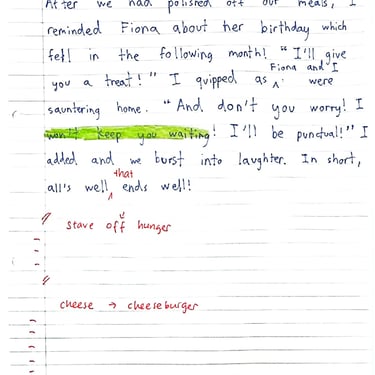 After we had polished off our meals, I
reminded Fiona about her birthday which
fell in the following month! "I'll give
Fiona and I
you a treat!" I quipped as ^ were
sauntering home. "And don't you worry! I
won't keep you waiting! I'll be punctual!" I
added and we burst into laughter. In short,
that
all's well ^ ends well!
stave off hunger
cheese → cheeseburger